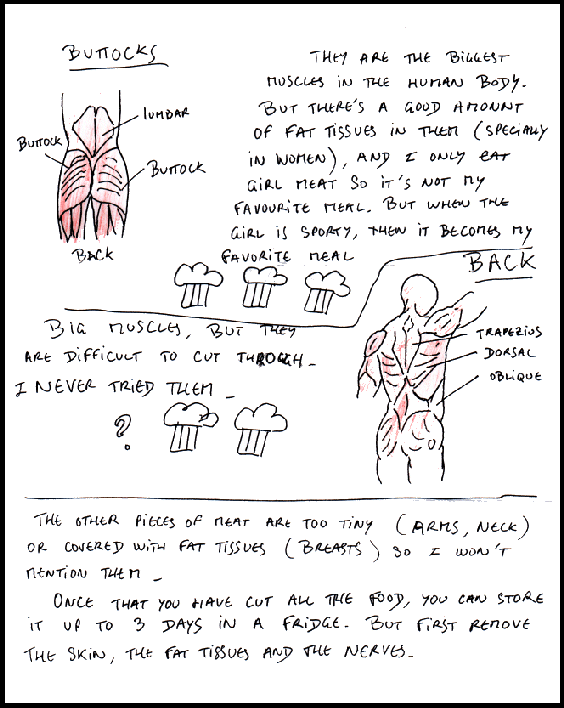 BUTTOCKS
THEY ARE THE BIGGEST
MUSCLES IN THE HUMAN BODY.
BUT THERE'S A GOOD AMOUNT
OF FAT TISSUES IN THEM (SPECIALLY
IN WOMEN), AND I ONLY EAT
GIRL MEAT SO IT'S NOT MY
FAVOURITE MEAL. BUT WHEN THE
GIRL IS SPORTY, THEN IT BECOMES MY
FAVORITE MEAL
LUMBAR
BUTTOCK
BUTTOCK
BACK
BACK
BIG MUSCLES, BUT THEY
ARE DIFFICULT TO CUT THROUGH.
I NEVER TRIED THEM.
?
TRAPEZIOS
DORSAL
OBLIQUE
THE OTHER PIECES OF MEAT ARE TOO TINY (ARMS, NECK)
OR COVERED WITH FAT TISSUES (BREASTS) SO I WON'T
MENTION THEM.
ONCE THAT YOU HAVE CUT ALL THE FOOD, YOU CAN STORE
IT UP TO 3 DAYS IN A FRIDGE. BUT FIRST REMOVE
THE SKIN, THE FAT TISSUES AND THE NERVES.